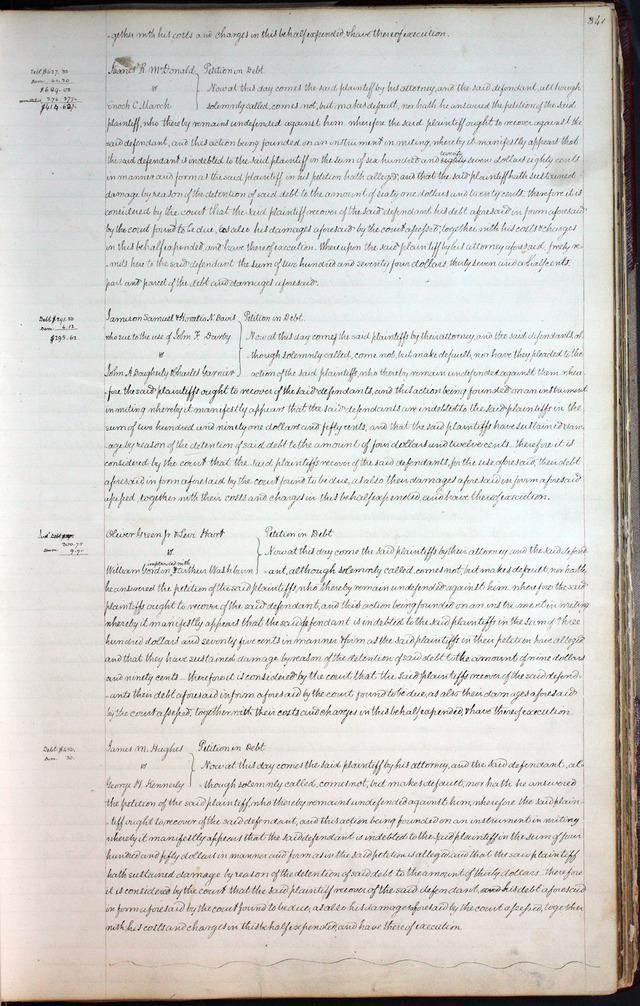 341
-gether with his costs and charges in this behalf expended, & have thereof execution.
Debt $627.80
Dam 61.20
$689.00
274.37½
$414.62½
James R McDonald Petition in Debt
vs Now at this day comes the said plaintiff by his attorney, and the said defendant, although
Enoch C. March solemnly called, comes not, but makes default, nor hath he answered the petition of the said
plaintiff, who thereby remains undefended against him. wherefore the said plaintiff ought to recover against the
said defendant, and this action being founded on an instrument in writing, whereby it manifestly appears that
twenty
the said defendant is indebted to the said plaintiff in the sum of six hundred and eighty seven dollars eighty cents
in manner and form as the said plaintiff in his petition hath alleged, and that the said plaintiff hath sustained
damage by reason of the detention of said debt to the amount of sixty one dollars and twenty cents. therefore it is
considered by the court that the said plaintiff recover of the said defendant his debt aforesaid in form aforesaid
by the court found to be due, as also his damages aforesaid by the court assessed, together with his costs & charges
in this behalf expended, and have thereof execution. Whereupon the said plaintiff by his attorney aforesaid, freely re-
mits here to the said defendant the sum of two hundred and seventy four dollars, thirty seven and a half cents,
part and parcel of the debt and damages aforesaid.
Debt $291.50
Dam 4.12
$295.62
Jameson Samuel & Horatio N. Davis Petition in Debt.
who sue to the use of John F. Darby Now at this day comes the said plaintiffs by their attorney, and the said defendants al-
vs though solemnly called, come not, but make default, nor have they pleaded to the
John A Dougherty & Charles Garnier action of the said plaintiffs, who thereby remain undefended against them where
fore the said plaintiffs ought to recover of the said defendants, and this action being founded on an instrument
in writing whereby it manifestly appears that the said defendants are indebted to the said plaintiffs in the
sum of two hundred and ninety one dollars and fifty cents, and that the said plaintiffs have sustained dam-
age by reason of the detention of said debt to the amount of four dollars and twelve cents. therefore it is
considered by the court that the said plaintiffs recover of the said defendants, for the use aforesaid, their debt
aforesaid, in form aforesaid by the court found to be due, as also their damages aforesaid in form aforesaid
assessed, together with their costs and charges in this behalf expended, and have thereof execution.
300.75
Dam 9.90
Oliver Green Jr & Levi Hart Petition in Debt
vs. Now at this day come the said plaintiffs by their attorney and the said defend-
impleaded with
William Gordon & Arthur Washburn -ant, although solemnly called, comes not, but makes default, nor hath
he answered the petition of the said plaintiffs, who thereby remain undefended against him. wherefore the said
plaintiffs ought to recover of the said defendant, and this action being founded on an instrument in writing
whereby it manifestly appears that the said defendant is indebted to the said plaintiffs in the sum of three
hundred dollars and seventy five cents in manner & form as the said plaintiffs in their petition have alleged
and that they have sustained damage by reason of the detention of said debt to the amount of nine dollars
and ninety cents. therefore it is considered by the court that the said plaintiffs recover of the said defend-
-ants their debt aforesaid in form aforesaid by the court found to be due, as also their damages aforesaid
by the court assessed, together with their costs and charges in this behalf expended, & have thereof execution.
Debt $450.
Dam 30.
James M. Hughes Petition in Debt
vs Now at this day comes the said plaintiff by his attorney, and the said defendant, al-
George H. Kennerly though solemnly called, comes not, but makes default, nor hath he answered
the petition of the said plaintiff, who thereby remains undefended against him, wherefore the said plain-
-tiff ought to recover of the said defendant, and this action being founded on an instrument in writing
whereby it manifestly appears that the said defendant is indebted to the said plaintiff in the sum of four
hundred and fifty dollars in manner and form as in the said petition is alleged and that the said plaintiff
hath sustained damage by reason of the detention of said debt to the amount of thirty dollars. therefore
it is considered by the court that the said plaintiff recover of the said defendant, and his debt aforesaid
in form aforesaid by the court found to be due, as also his damages aforesaid by the court assessed, together
with his costs and charges in this behalf expended, and have thereof execution.